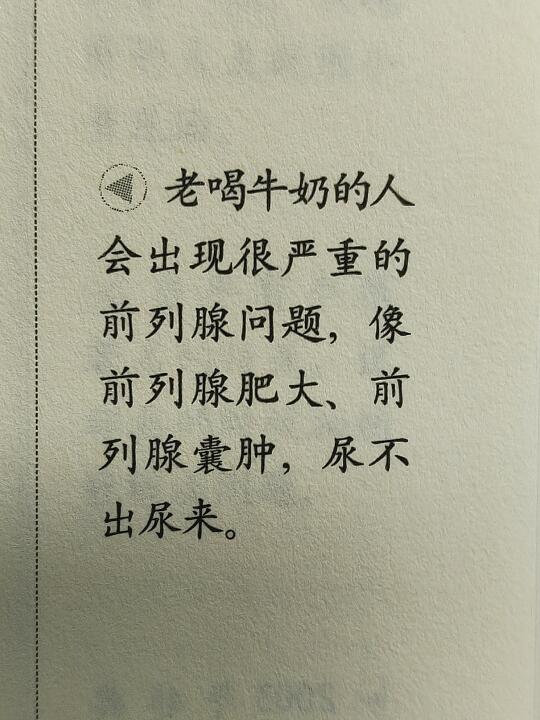 老喝牛奶的人
会出现很严重的
前列腺问题，像
前列腺肥大、前
列腺囊肿，尿不
出尿来。